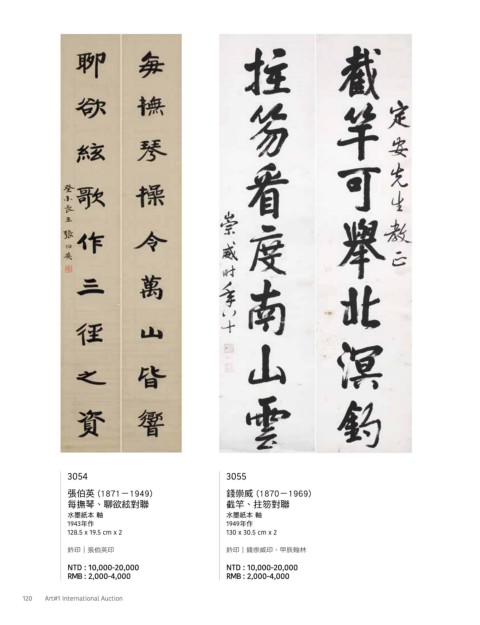 每撫琴操令萬山皆響
聊欲絃歌作三徑之資
張伯英
截竿可舉北溟釣
定安先生教正
拄笏看度南山雲
崇威時年八十
3054
張伯英（1871－1949）
每撫琴、聊欲絃對聯
水墨紙本 軸
1943年作
128.5 x 19.5 cm x 2
鈐印｜張伯英印
NTD : 10,000-20,000
RMB : 2,000-4,000
3055
錢崇威（1870－1969）
截竿、拄笏對聯
水墨紙本 軸
1949年作
130 x 30.5 cm x 2
鈐印｜錢崇威印、甲辰翰林
NTD : 10,000-20,000
RMB : 2,000-4,000
120 Art#1 International Auction